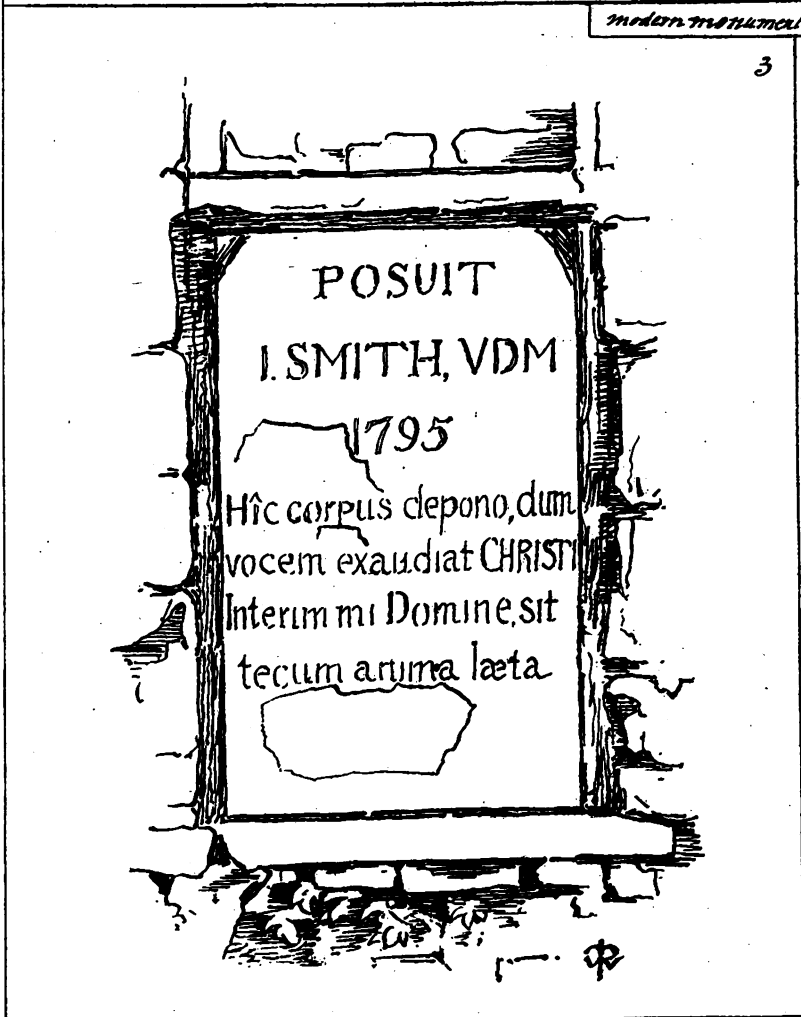 modern monument
3
POSUIT
I. SMITH, VDM
1795
Hîc corpus depono, dum
vocem exaudiat CHRISTI
Interim mi Domine, sit
tecum anima læta